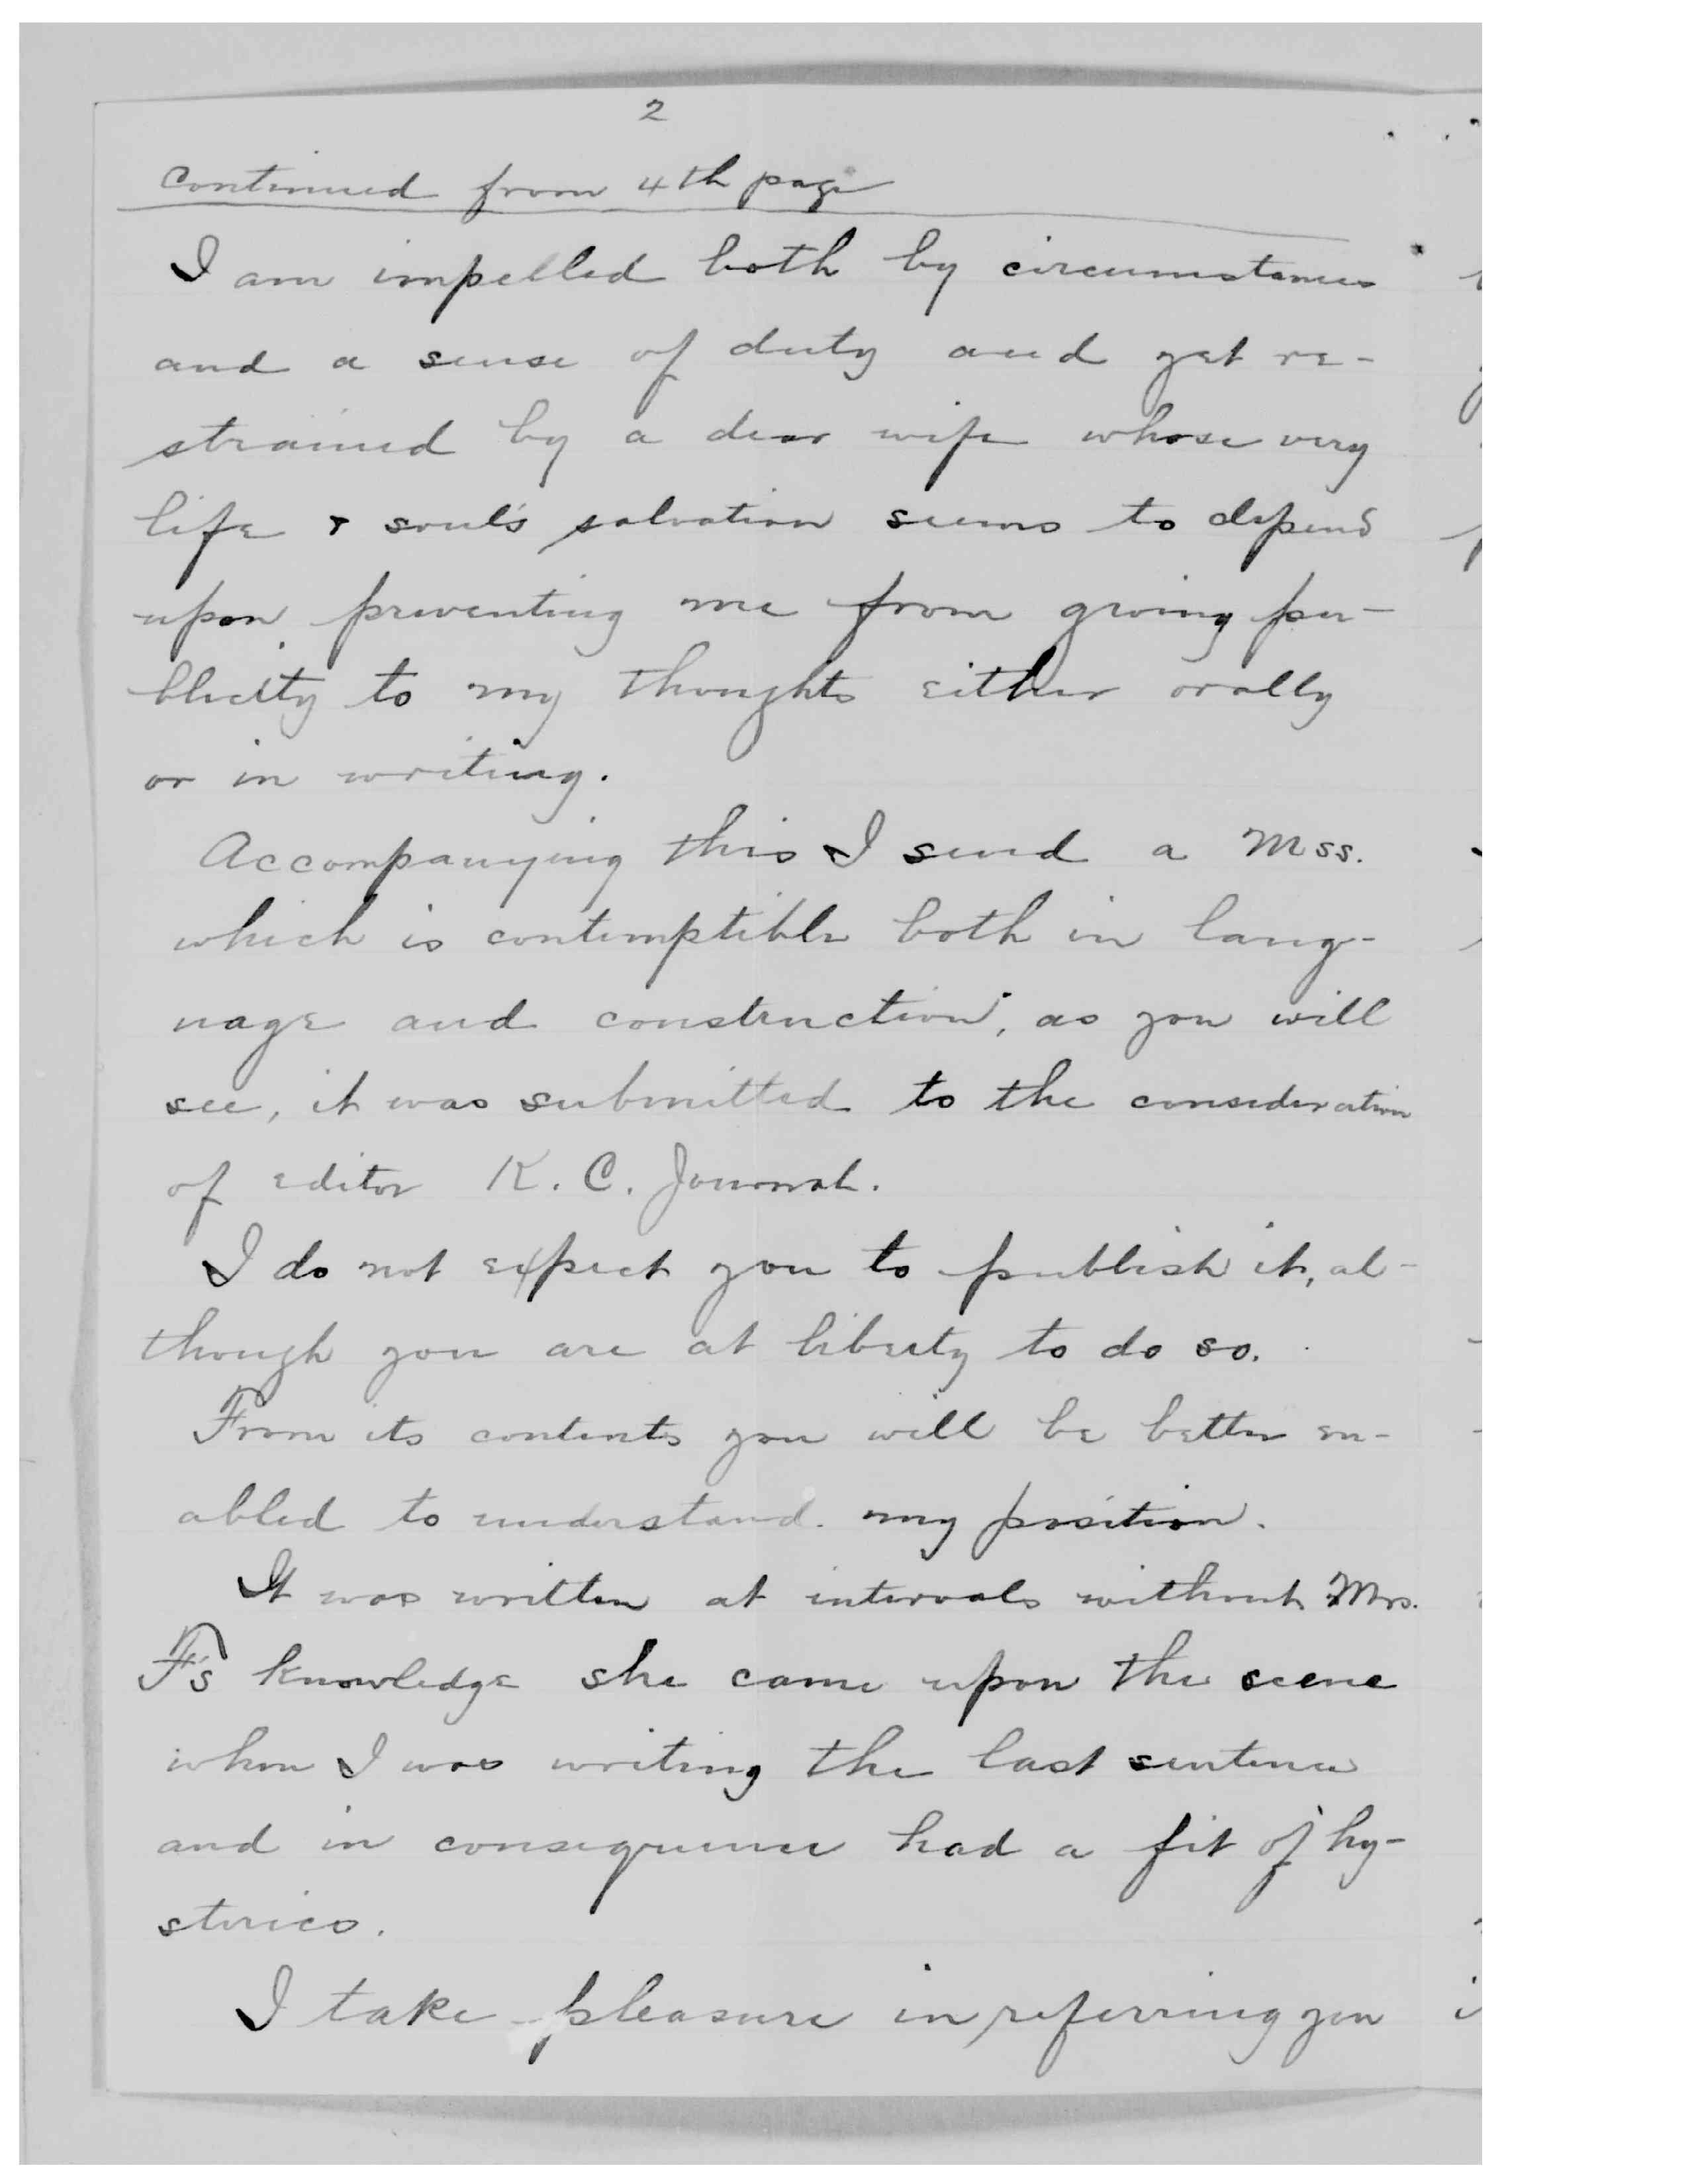 2
Continued from 4th page
I am impelled both by circumstances
and a sense of duty and yet re-
strained by a dear wife whose very
life & soul's salvation seems to depend
upon preventing me from giving pu-
blicity to my thoughts either orally
or in writing.
Accompanying this I send a Mss.
which is contemptible both in lang-
uage and construction, as you will
see, it was submitted to the consideration
of editor K. C. Journal.
I do not expect you to publish it, al-
though you are at liberty to do so.
From its contents you will be better en-
abled to understand my position.
It was written at intervals without Mrs.
F's knowledge she came upon the scene
when I was writing the last sentence
and in consequence had a fit of hy-
sterics.
I take pleasure in referring you